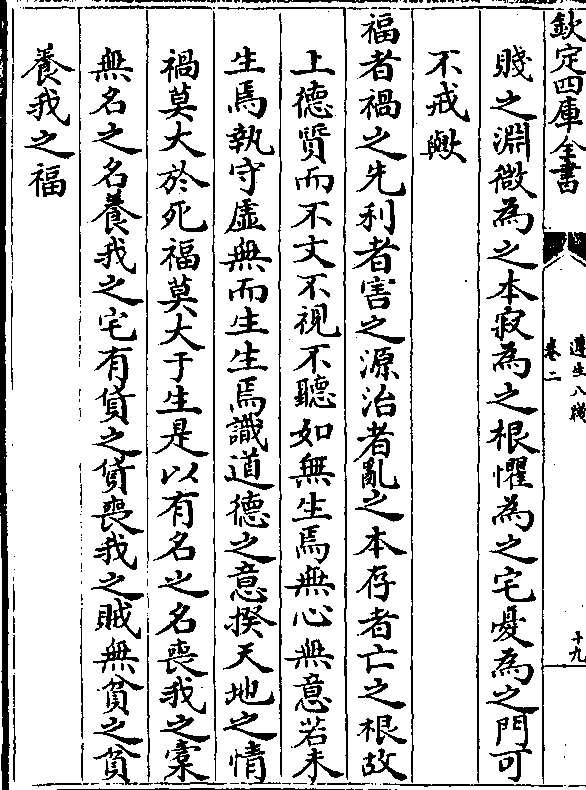 欽定四庫全書
遵生八牋
卷二
十九
賤之淵微為之本寂為之根懼為之宅憂為之門可
不戒歟
福者禍之先利者害之源治者亂之本存者亡之根故
上德賢而不文不視不聽如無生焉無心無意若未
生焉執守虛無而生生焉識道德之意揆天地之情
禍莫大於死福莫大于生是以有名之名喪我之橐
無名之名養我之宅有貨之貨喪我之賊無貧之貧
養我之福